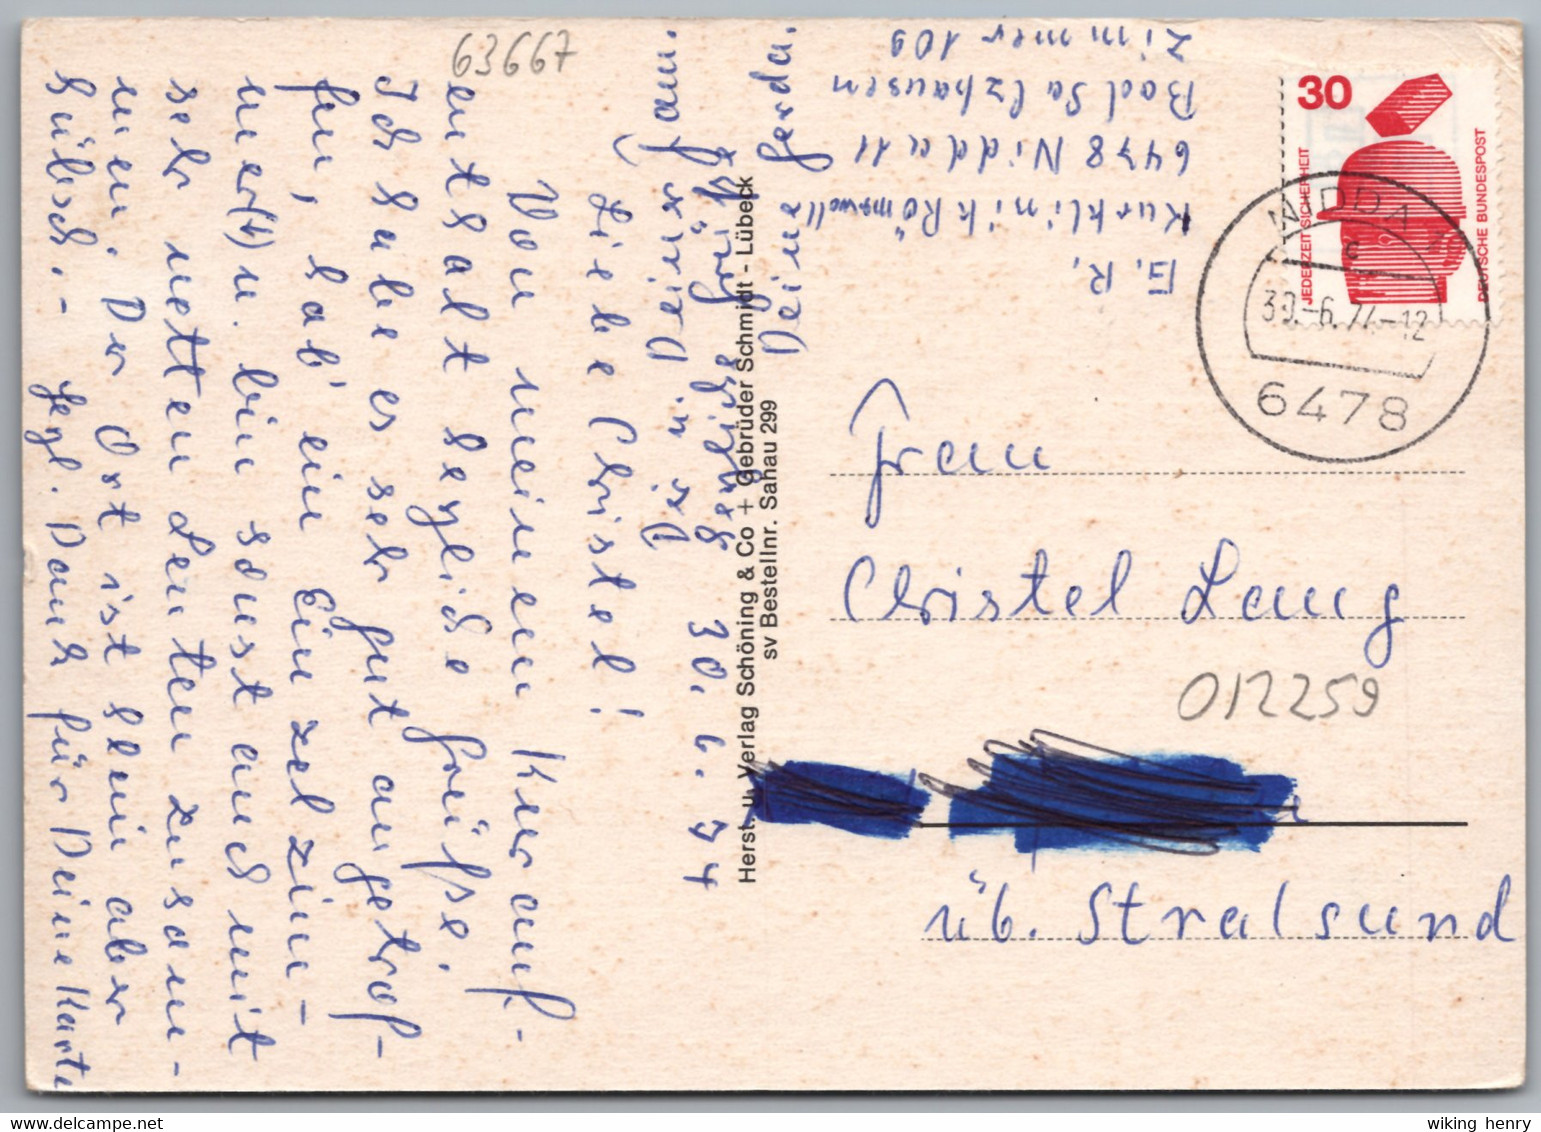 63667
30. 6. 74
Liebe Christel!
Von meinem Kurauf-
enthalt herzliche Grüße.
Ich habe es sehr gut angetrof-
fen, hab' ein Einzelzim-
mer(4) u. bin sonst auch mit
sehr netten Leuten zusam-
men. Der Ort ist klein aber
hübsch. - Hzl. Dank für Deine Karte
Dir u. Deiner
Deine Gerda.
Herst. u. Verlag Schöning & Co + Gebrüder Schmidt - Lübeck
sv Bestellnr. Sahau 299
G. R.
Kurklinik Römerwall
6478 Nidda 11
Bad Salzhausen
Zimmer 109
30
JEDERZEIT SICHERHEIT
DEUTSCHE BUNDESPOST
NIDDA 1
c
30.-6.74-12
6478
Frau
Christel Lang
012259
üb. Stralsund
wiking henry